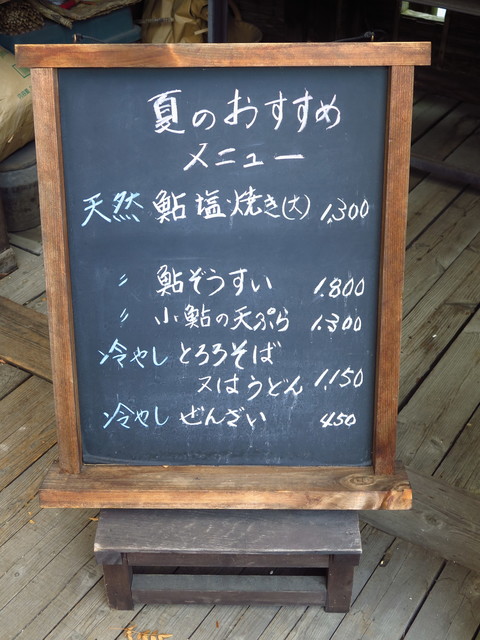 夏のおすすめ
メニュー
天然 鮎塩焼き(大) 1,300
〃 鮎ぞうすい 1.800
〃 小鮎の天ぷら 1.300
冷やし とろろそば
又はうどん 1,150
冷やし ぜんざい 450